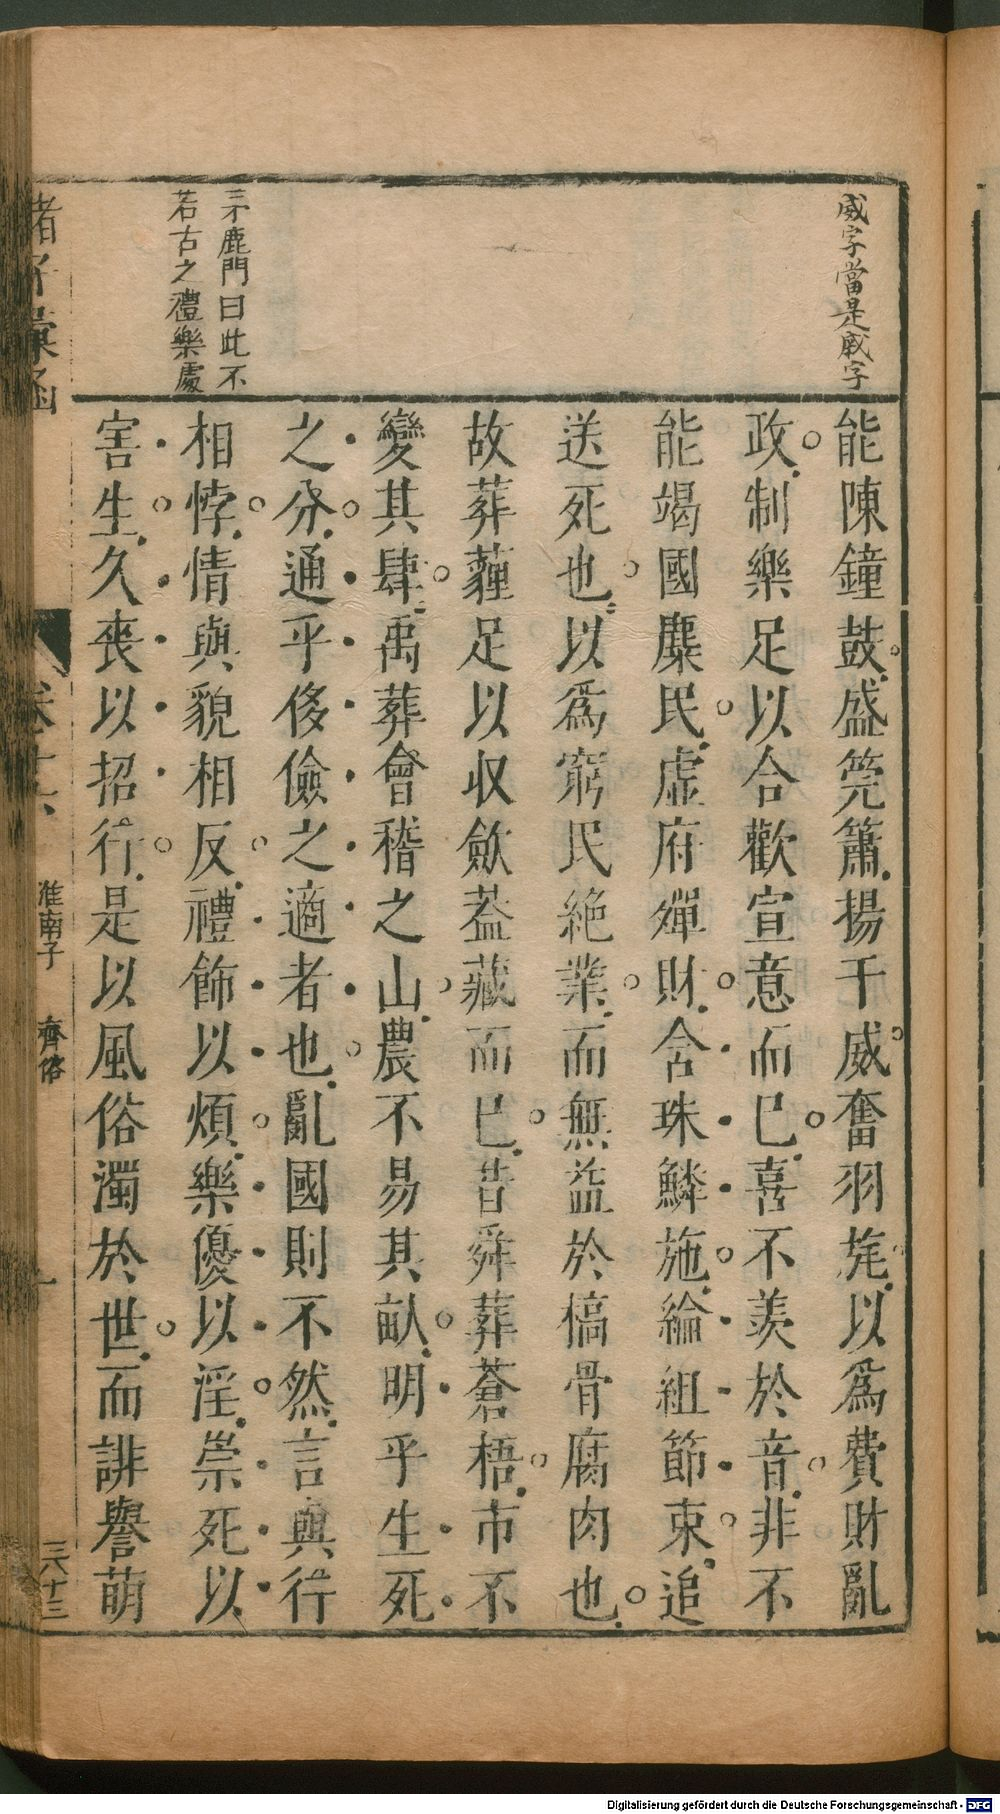 威字當是戚字
能陳鐘鼓盛筦簫揚干威奮羽旄以爲費財亂
政制樂足以合歡宣意而已喜不羨於音非不
能竭國麋民虛府殫財含珠鱗施綸組節束追
送死也以爲窮民絕業而無益於槁骨腐肉也
故葬薶足以収歛葢藏而已昔舜葬蒼梧市不
變其肆禹葬會稽之山農不易其畝明乎生死
之分通乎侈儉之適者也亂國則不然言與行
茅鹿門曰此不
若古之禮樂處
相悖情與貌相反禮飾以煩樂優以淫崇死以
害生久喪以招行是以風俗濁於世而誹譽萌
諸子彙函
卷十六
淮南子 齊俗
三六十三
Digitalisierung gefördert durch die Deutsche Forschungsgemeinschaft - DFG